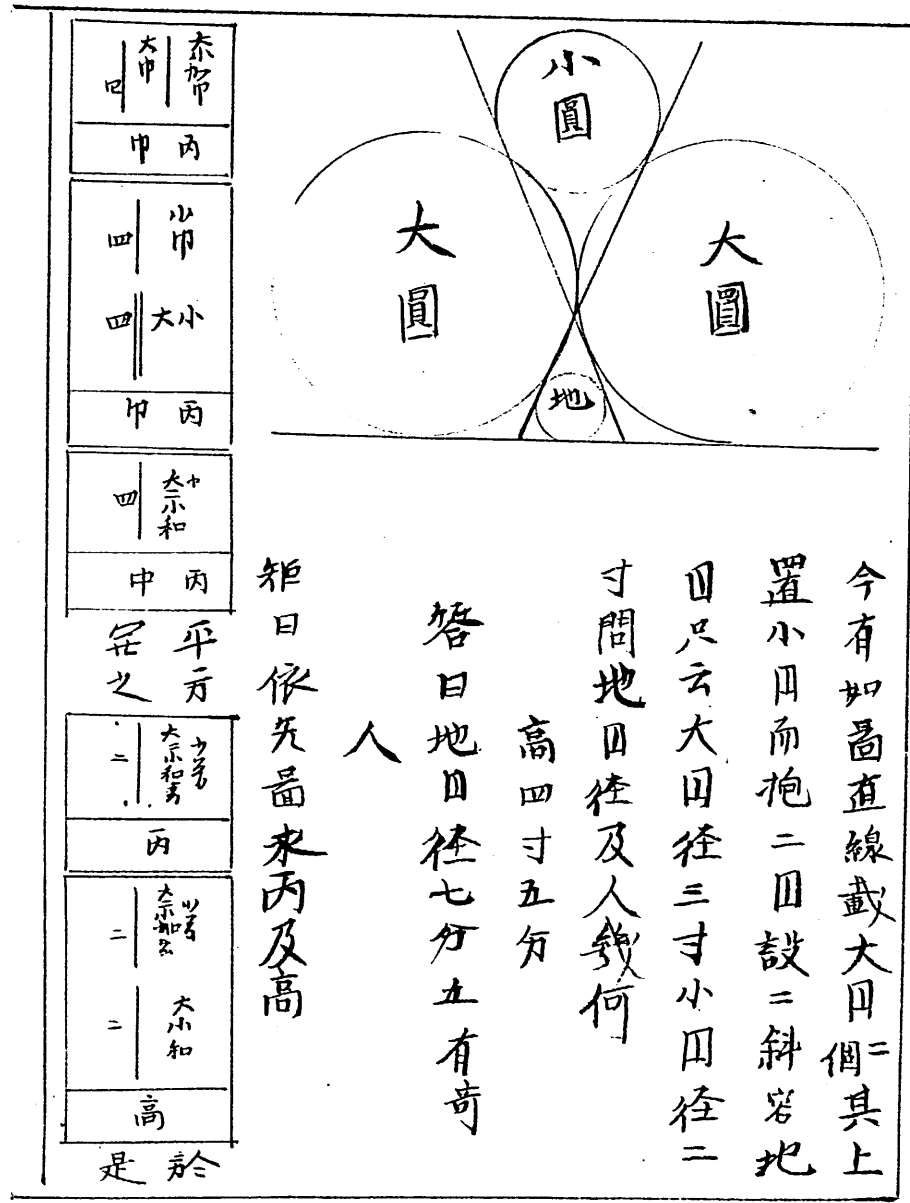 小
圓
大
圓
大
圓
地
今有如圖直線載大円二個其上
置小円而抱二円設二斜容地
円只云大円径三寸小円径二
寸問地円径及人幾何
高四寸五分
答曰地円径七分五有奇
人
矩曰依先圖求丙及高
大小和巾
大巾
巾 丙
小巾 四
大小 四
巾 丙
大小和 四
巾 丙
平方
二
丙
二
大小和 二
高
於是